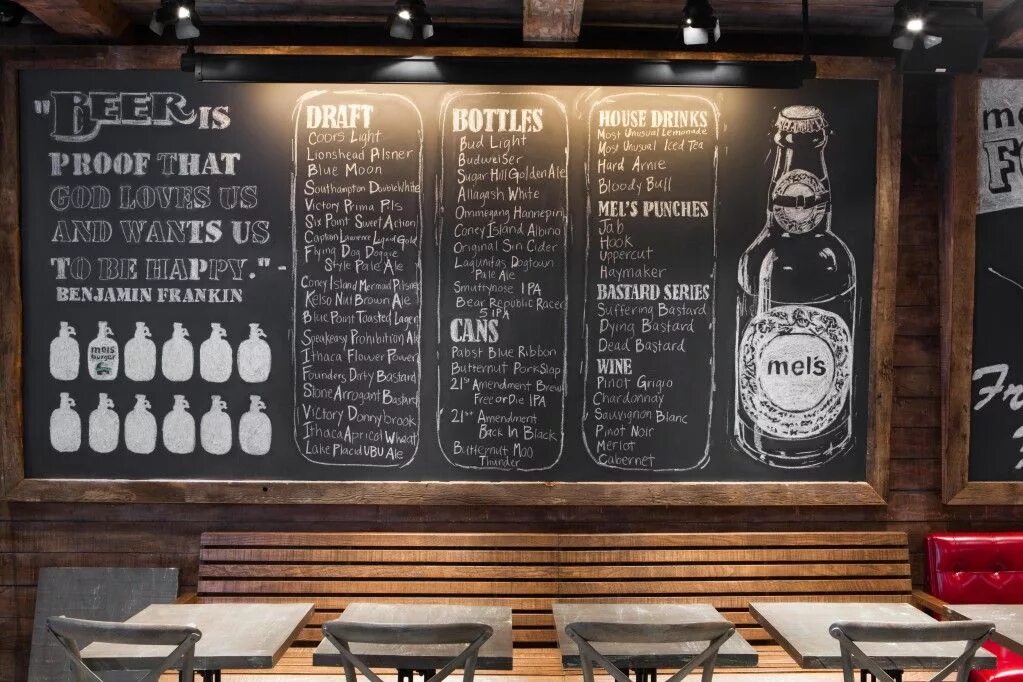 "BEER IS
PROOF THAT
GOD LOVES US
AND WANTS US
TO BE HAPPY." -
BENJAMIN FRANKIN
mels
burger
DRAFT
Coors Light
Lionshead Pilsner
Blue Moon
Southampton Double White
Victory Prima Pils
Six Point Sweet Action
Captain Lawrence Liquid Gold
Flying Dog Doggie
Style Pale Ale
Coney Island Mermaid Pilsner
Kelso Nut Brown Ale
Blue Point Toasted Lager
Speakeasy Prohibition Ale
Ithaca Flower Power
Founders Dirty Bastard
Stone Arrogant Bastard
Victory Donnybrook
Ithaca Apricot Wheat
Lake Placid UBU Ale
BOTTLES
Bud Light
Budweiser
Sugar Hill Golden Ale
Allagash White
Ommegang Hannepin
Coney Island Albino
Original Sin Cider
Lagunitas Dogtown
Pale Ale
Smuttynose IPA
Bear Republic Racer
5 IPA
CANS
Pabst Blue Ribbon
Butternut PorkSlap
21st Amendment Brew
Free or Die IPA
21st Amendment
Back In Black
Butternut Moo
Thunder
HOUSE DRINKS
Most Unusual Lemonade
Most Unusual Iced Tea
Hard Arnie
Bloody Bull
MEL'S PUNCHES
Jab
Hook
Uppercut
Haymaker
BASTARD SERIES
Suffering Bastard
Dying Bastard
Dead Bastard
WINE
Pinot Grigio
Chardonnay
Sauvignon Blanc
Pinot Noir
Merlot
Cabernet
mel's